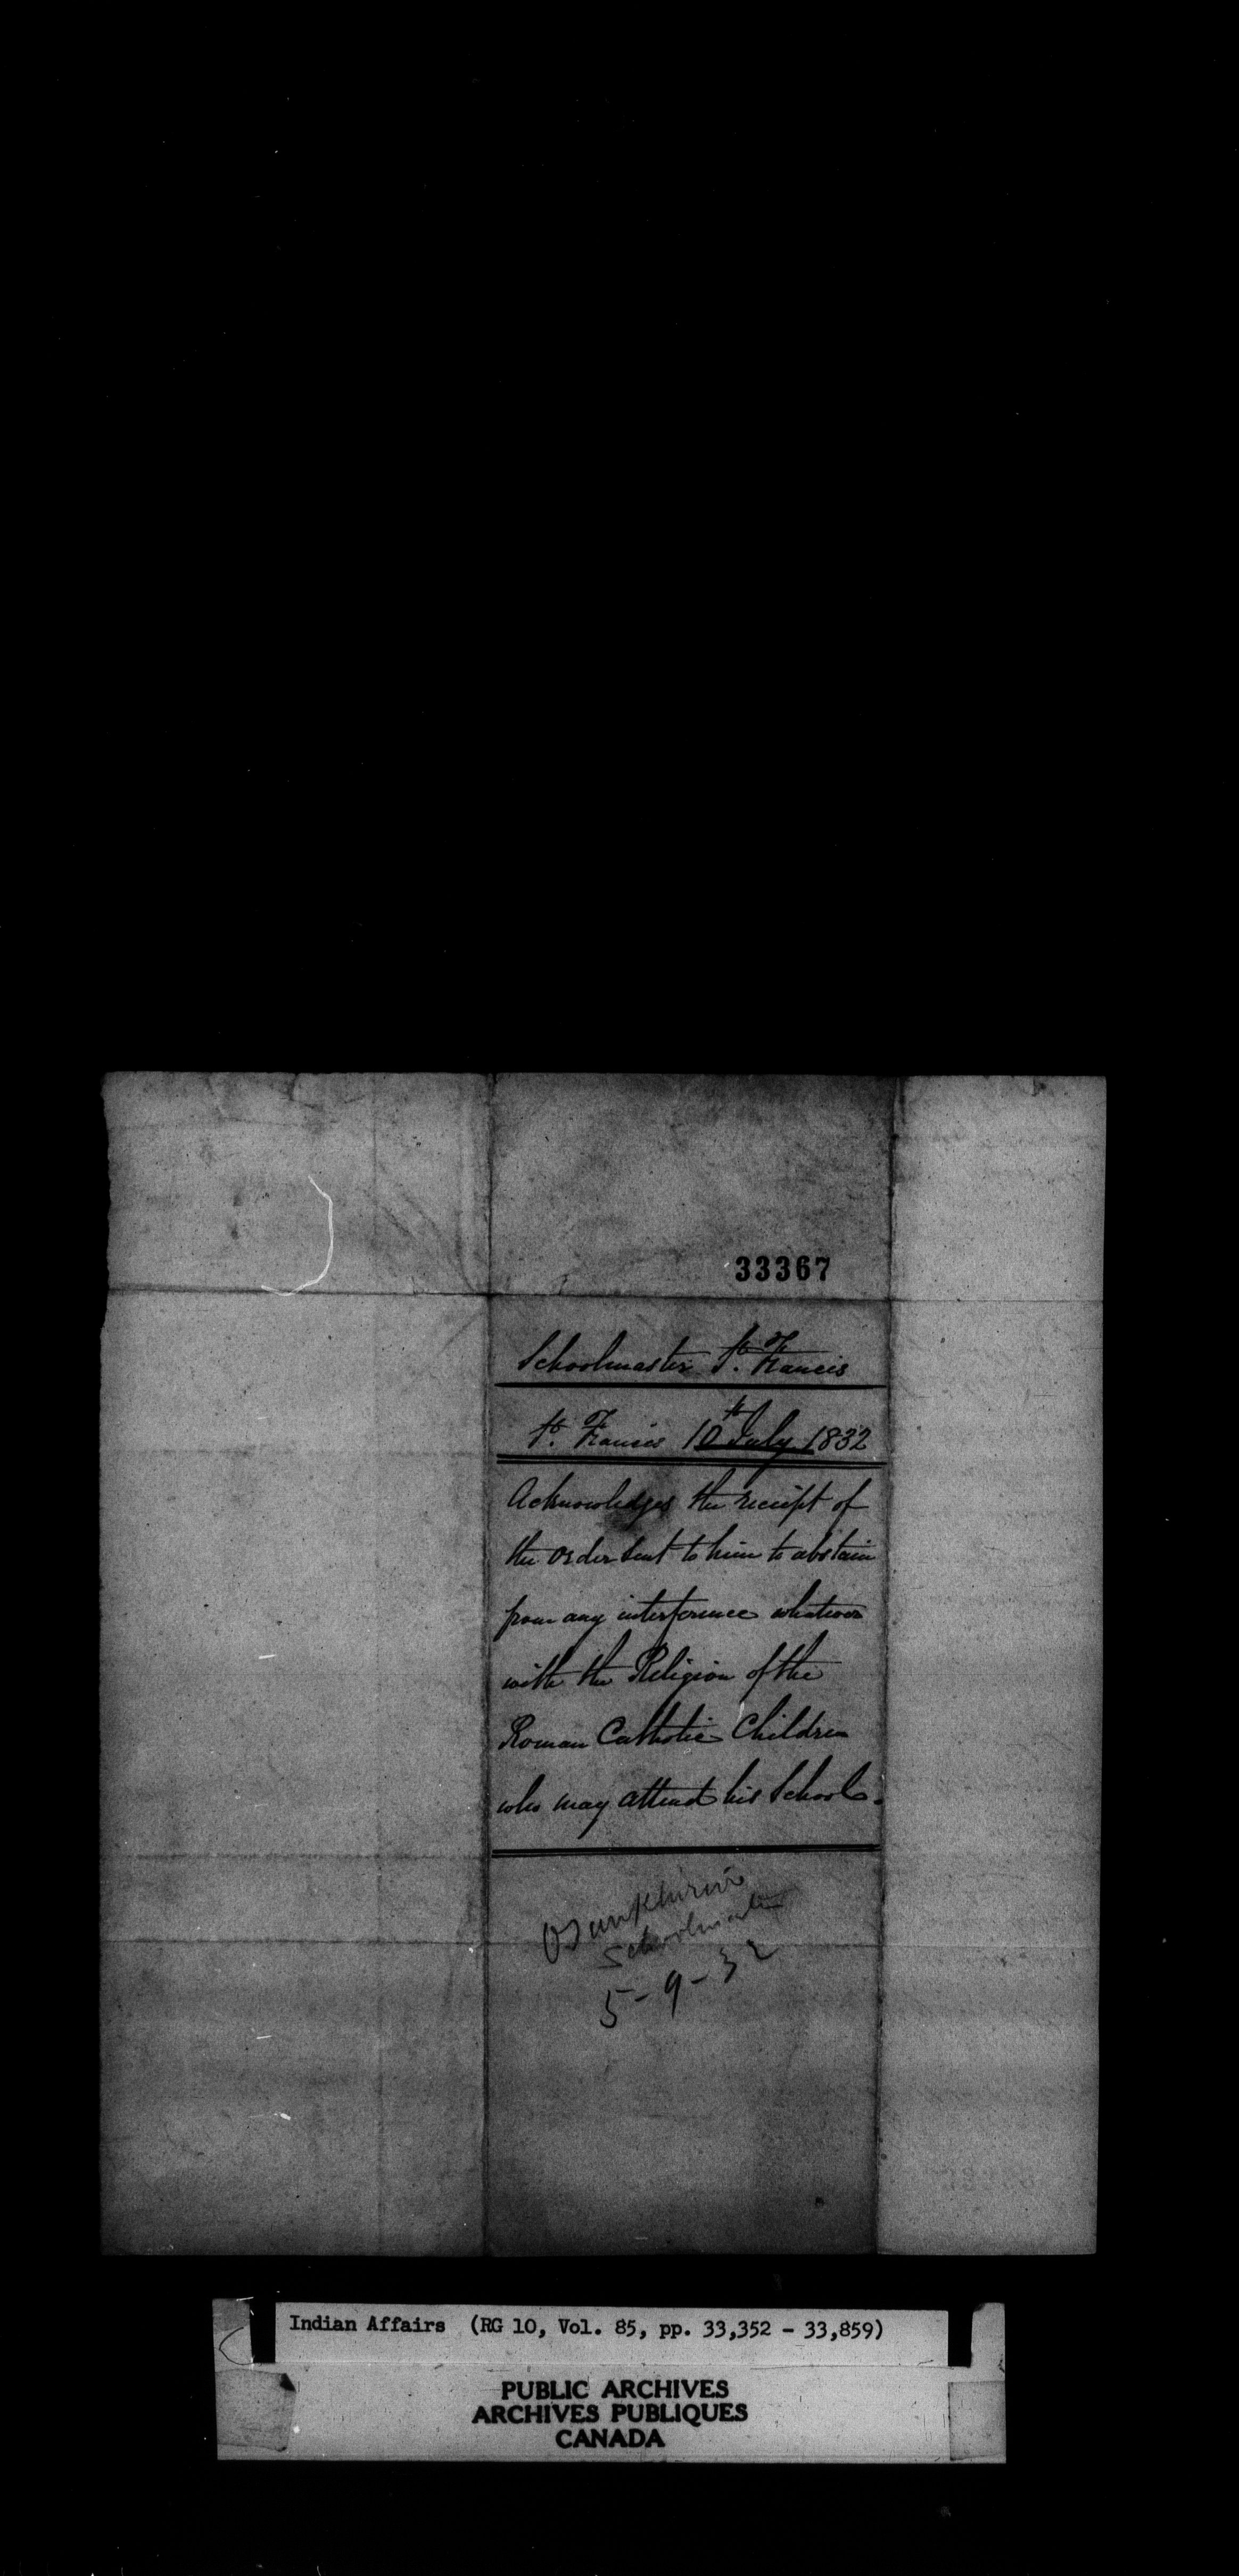 33367
Schoolmaster St. Francis
St. Francis 10th July 1832
Acknowledges the receipt of
the order sent to him to abstain
from any interference whatever
with the Religion of the
Roman Catholic Children
who may attend his School.
Schoolmaster
5-9-32
Indian Affairs (RG 10, Vol. 85, pp. 33,352 - 33,859)
PUBLIC ARCHIVES
ARCHIVES PUBLIQUES
CANADA